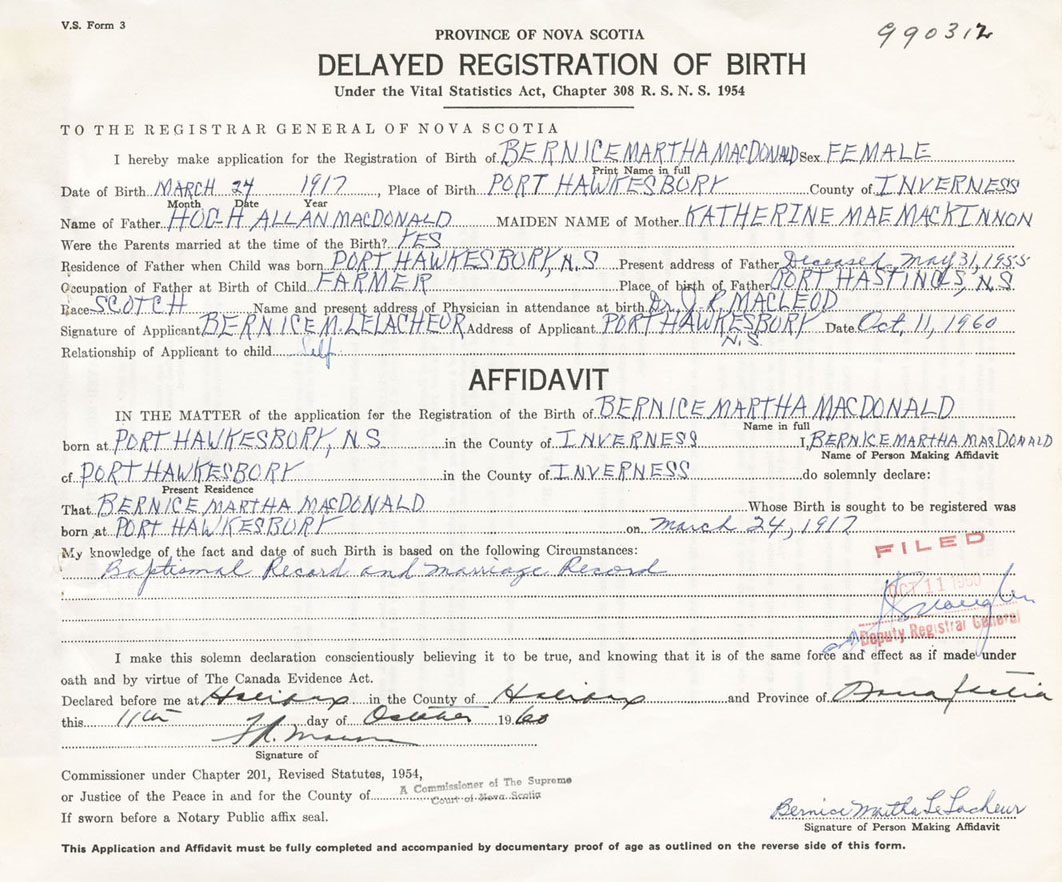 V.S. Form 3
990312
PROVINCE OF NOVA SCOTIA
DELAYED REGISTRATION OF BIRTH
Under the Vital Statistics Act, Chapter 308 R. S. N. S. 1954
TO THE REGISTRAR GENERAL OF NOVA SCOTIA
I hereby make application for the Registration of Birth of BERNICE MARTHA MACDONALD Sex FEMALE
Print Name in full
Date of Birth MARCH 24 1917, Place of Birth PORT HAWKESBORY County of INVERNESS
Month Date Year
Name of Father HUGH ALLAN MACDONALD MAIDEN NAME of Mother KATHERINE MAE MACKINNON
Were the Parents married at the time of the Birth? YES
Residence of Father when Child was born PORT HAWKESBORY, N.S Present address of Father Deceased May 31, 1955
Occupation of Father at Birth of Child FARMER Place of birth of Father PORT HASTINGS, N.S.
Race SCOTCH Name and present address of Physician in attendance at birth Dr. J. R MACLEOD
Signature of Applicant BERNICE M. LELACHEUR Address of Applicant PORT HAWKESBORY Date Oct, 11, 1960
N.S
Relationship of Applicant to child Self
AFFIDAVIT
IN THE MATTER of the application for the Registration of the Birth of BERNICE MARTHA MACDONALD
Name in full
born at PORT HAWKESBORY, N.S in the County of INVERNESS I, BERNICE MARTHA MACDONALD
Name of Person Making Affidavit
of PORT HAWKESBORY in the County of INVERNESS do solemnly declare:
Present Residence
That BERNICE MARTHA MACDONALD Whose Birth is sought to be registered was
born at PORT HAWKESBURY on March 24, 1917
My knowledge of the fact and date of such Birth is based on the following Circumstances:
FILED
Baptismal Record and Marriage Record
OCT 11 1960
Deputy Registrar General
I make this solemn declaration conscientiously believing it to be true, and knowing that it is of the same force and effect as if made under
oath and by virtue of The Canada Evidence Act.
Declared before me at Halifax in the County of Halifax and Province of Nova Scotia
this 11th day of October 1960
Signature of
Commissioner under Chapter 201, Revised Statutes, 1954,
A Commissioner of The Supreme
or Justice of the Peace in and for the County of
Court of Nova Scotia
If sworn before a Notary Public affix seal.
Bernice Martha LeLacheur
Signature of Person Making Affidavit
This Application and Affidavit must be fully completed and accompanied by documentary proof of age as outlined on the reverse side of this form.